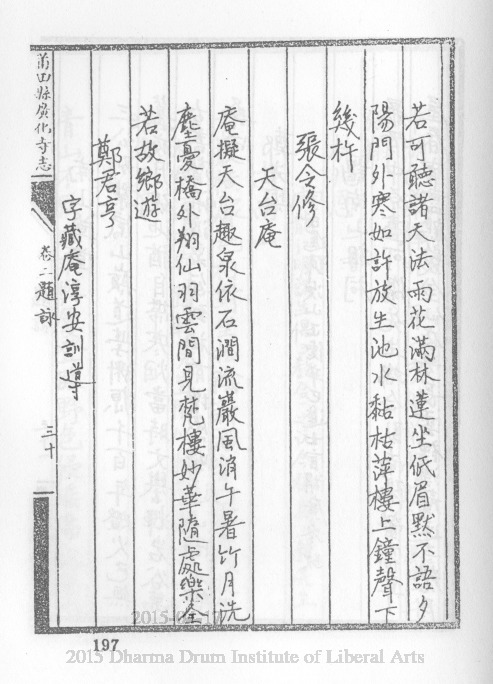 若可聽諸天法雨花滿林蓮坐低眉默不語夕
陽門外寒如許放生池水黏枯萍樓上鐘聲下
幾杵
張令修
天台庵
庵擬天台趣泉依石澗流巖風消午暑竹月洗
塵憂橋外翔仙羽雲間見梵樓妙華隨處樂全
若故鄉遊
鄭君亨
字藏庵淳安訓導
莆田縣廣化寺志
卷二題詠
三十
197
2015 Dharma Drum Institute of Liberal Arts